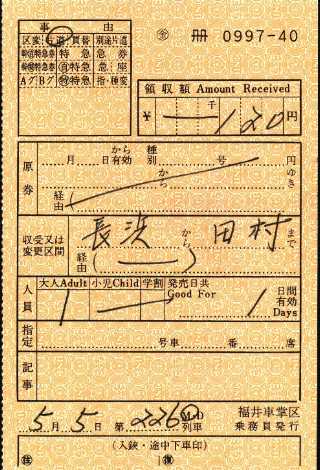 事由 金 冊 0997-40
区変 別途片道
特急 急 券
特急 急 座
Aグ BグP 特急 指・種変
領収額 Amount Received
¥ 千 120 円
原券 月 日有効 から 種別 号 から 円 ゆき
経由 (
収受又は変更区間 長浜 から 田村 まで
経由 ( )
人員 大人Adult 小児Child 学割 発売日共 Good For 日間有効 Days
1 1
指定 号車 番 席
記事
5月 5日 第 2260 M.D 列車 福井車掌区乗務員発行
(入鋏・途中下車印)